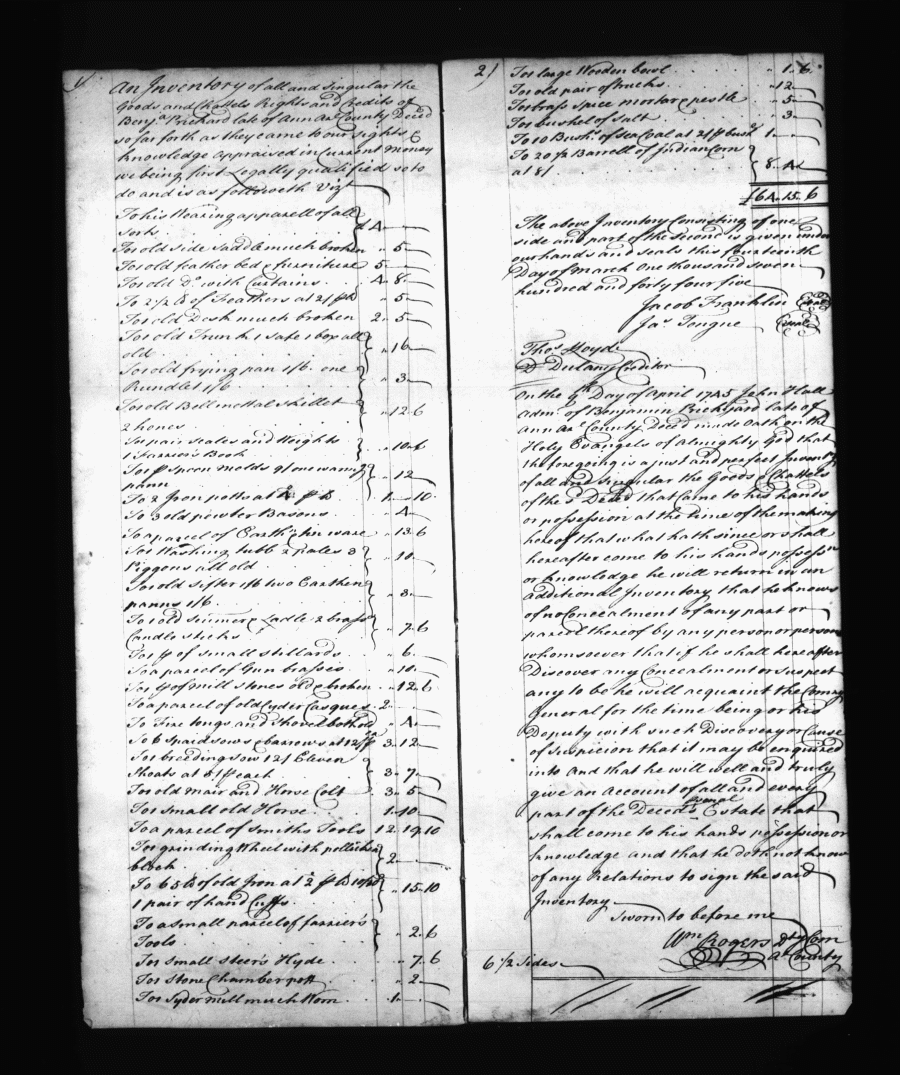 An Inventory of all and Singular the
Goods and Chattels Rights and Credits of
Benja. Prichard late of Ann Arl. County Deced
so far forth as they came to our sights &
knowledge appraised in Current Money
we being first Legally qualified so to
do and is as followeth Vizt
To his Wearing apparell of all
sorts £ 4
To 1 old side saddle much broken " 5
To 1 old feather bed & furniture 5
To 1 old Do. with Curtains 4 " 8
To 2 1/2 lb of Feathers at 2/ p lb " 5
To 1 old Desk much broken 2 " 5
To 1 old Trunk 1 safe 1 box all
old " 16
To 1 old frying pan 1/6 one
Rundlet 1/6 " 3
To 1 old Bell mettal skillet
2 hones " 12 " 6
To 1 pair scales and Weights
1 Farrier's Book " 10 " 6
To 1 pr Spoon Molds 9/ one warmg
pann " 12
To 2 Iron potts at p lb 1 " 10
To 3 old pewter Basons " 4
To a parcel of Earthen ware " 13 " 6
To 1 Washing tubb 2 pales 3
Piggons all old " 10
To 1 old sifter 1/6 two Earthen
panns 1/6 " 3
To 1 old skimer & Ladle 2 brass
Candlesticks " 7 " 6
To 1 pr of small stillards " 6
To a parcel of Gun brasses " 10
To 1 pr of mill stones old & broken " 12 " 6
To a parcel of old Cyder Casques 2
To Fire tongs and shovel both old " 4
To 6 spaid sows & barrows at 12/ p 3 " 12
To 1 breeding sow 12/ Eleven
Shoats at 5/ p each 3 " 7
To 1 old Mair and Horse Colt 3 " 5
To 1 small old Horse 1 " 10
To a parcel of Smiths Tools 12 " 19 " 10
To 1 grinding Wheel with
block 2
To 65 lb of old Iron at p lb
1 pair of hand Cuffs " 15 " 10
To a small parcel of farrier's
Tools " 2 " 6
To 1 small steers Hyde " 7 " 6
To 1 Stone Chamber pott " 2
To 1 Syder mill much Worn 1
2/ To 1 large Wooden bowl " 1 " 6
To 1 old pair of trucks " 12
To 1 brass spice mortar & pestle " 5
To 1 bushel of Salt " 3
To 10 Bushs. of Sea Coal at 2/ p bush 1
To 20 1/2 Barrell of Indian Corn
at 8/ 8 " 4
£64 " 15 " 6
The above Inventory Consisting of one
side and part of the second is given under
our hands and seals this fourteenth
Day of March One thousand seven
hundred and forty four five
Jacob Franklin (Seal)
Jas. Tongue (Seale)
Thos Hoyde
Dl. Dulany Creditor
On the 9th Day of April 1745 John Hall
Admr. of Benjamin Prichard late of
Ann Arl County Deced made Oath on the
Holy Evangels of Almighty God that
the foregoing is a just and perfect Inventory
of all and singular the Goods & Chattels
of the sd Deced that Came to his hands
or possession at the time of the making
hereof that what hath since or shall
hereafter come to his hands possession
or knowledge he will return in an
additional Inventory that he knows
of no Concealment of any part or
parcel thereof by any person or persons
whomsoever that if he shall hereafter
Discover any Concealment or suspect
any to be he will acquaint the Comry
General for the time being or his
Deputy with such Discovery or Cause
of suspicion that it may be enquired
into And that he will well and truly
give an Account of all and every
part of the Deceds personal Estate that
shall come to his hands possession or
knowledge and that he doth not know
of any Relations to sign the said
Inventory
Sworn to before me
Wm Rogers Dty Com
Al County
6 1/2 Sides